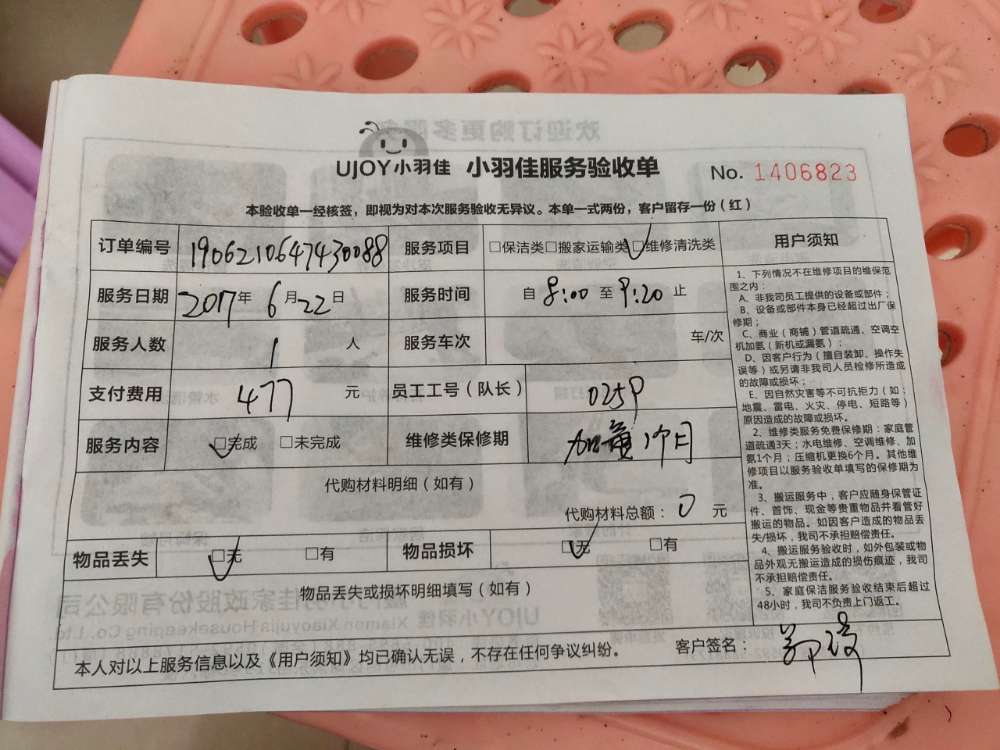 欢迎订购更多服务
UJOY小羽佳 小羽佳服务验收单 No. 1406823
本验收单一经核签，即视为对本次服务验收无异议。本单一式两份，客户留存一份（红）
订单编号 1906210647430088 服务项目 □保洁类□搬家运输类□维修清洗类
服务日期 2017年6月22日 服务时间 自 8:00 至 9:20 止
服务人数 1 人 服务车次 车/次
支付费用 477 元 员工工号（队长） 0259
服务内容 □完成 □未完成 维修类保修期 个月
代购材料明细（如有）
代购材料总额：0 元
物品丢失 □无 □有 物品损坏 □无 □有
物品丢失或损坏明细填写（如有）
本人对以上服务信息以及《用户须知》均已确认无误，不存在任何争议纠纷。 客户签名：
用户须知
1、下列情况不在维修项目的维保范
围之内：
A、非我司员工提供的设备或部件；
B、设备或部件本身已经超过出厂保
修期；
C、商业（商铺）管道疏通、空调空
机加氨（新机或漏氨）；
D、因客户行为（擅自装卸、操作失
误等）或另请非我司人员检修所造成
的故障或损坏；
E、因自然灾害等不可抗拒力（如：
地震、雷电、火灾、停电、短路等）
原因造成的故障或损坏。
2、维修类服务免费保修期：家庭管
道疏通3天；水电维修、空调维修、加
氨1个月；压缩机更换6个月。其他维
修项目以服务验收单填写的保修期为
准。
3、搬运服务中，客户应随身保管证
件、首饰、现金等贵重物品并看管好
搬运的物品。如因客户造成的物品丢
失/损坏，我司不承担赔偿责任。
4、搬运服务验收时，如外包装或物
品外观无搬运造成的损伤痕迹，我司
不承担赔偿责任。
5、家庭保洁服务验收结束后超过
48小时，我司不负责上门返工。